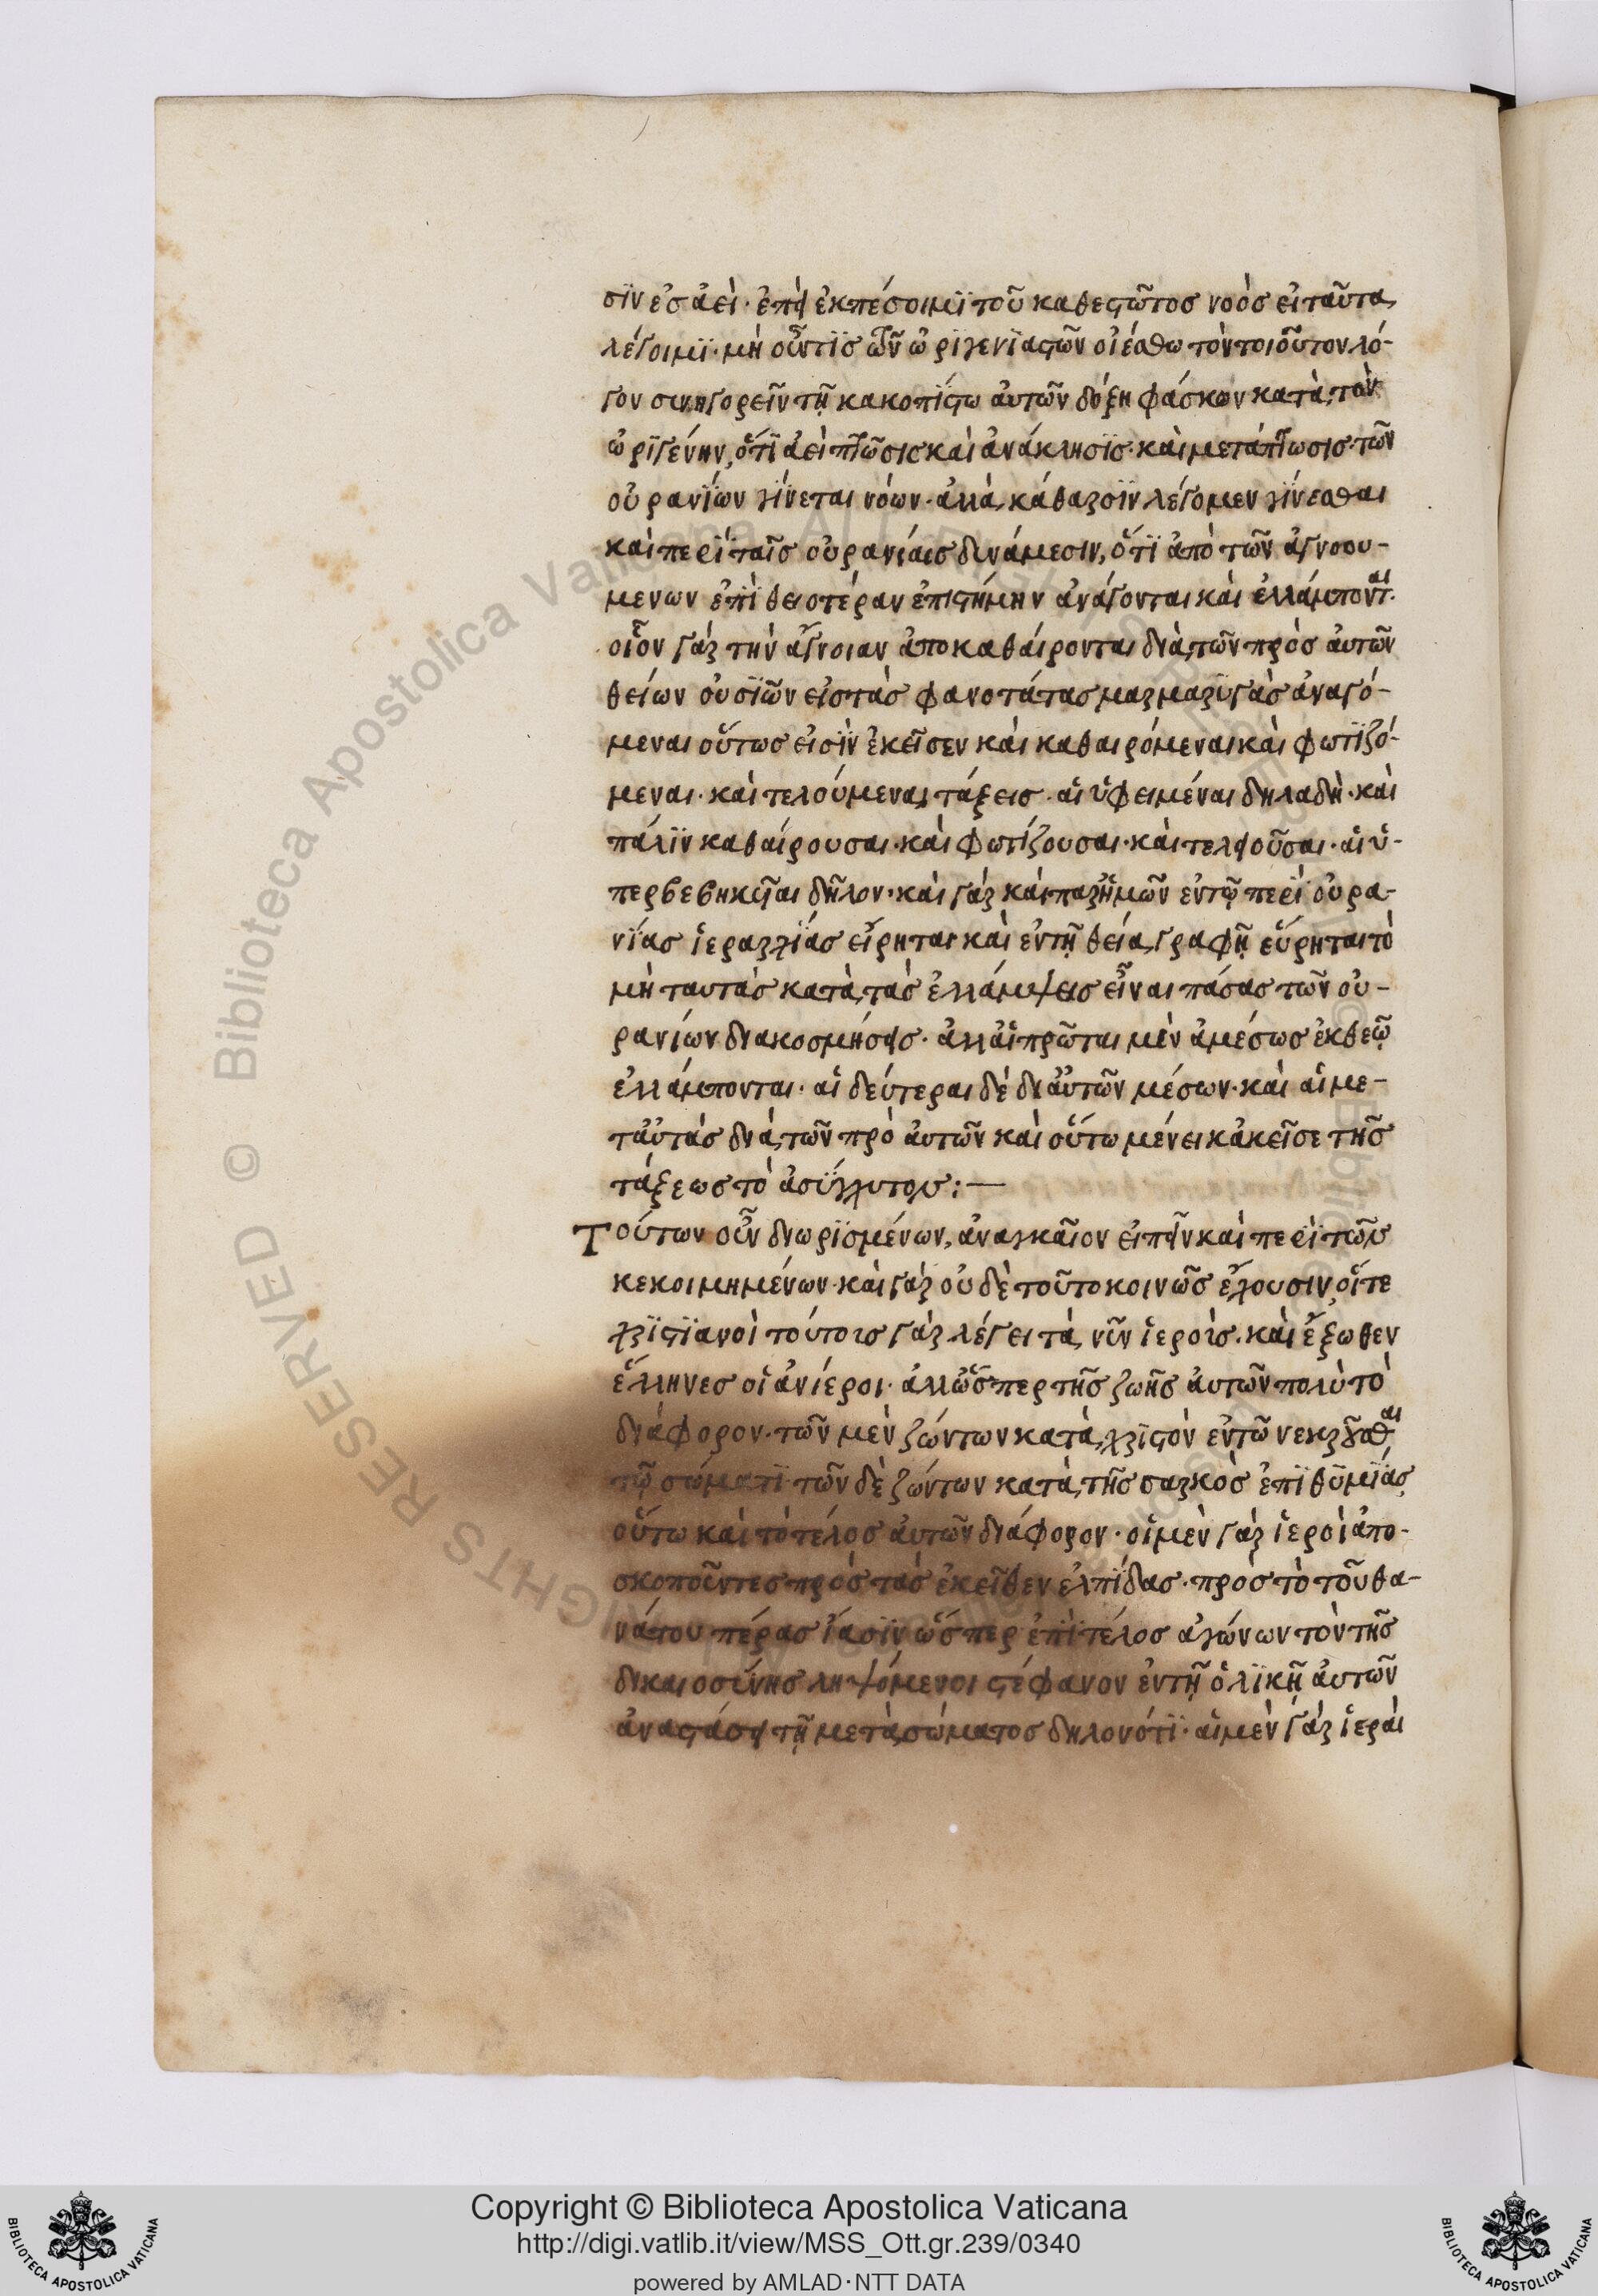 σϊν ἐσ ἀεὶ· ἐπεὶ ἐκπέσοιμϊ τοῦ καθεστῶτοσ νοὸσ εἰ ταῦτα
λέγοιμϊ· μὴ οὖν τϊσ τῶν ὠριγενϊαστῶν οἰέσθω τὸν τοιοῦτον λό-
γον συνηγορεῖν τῆ κακοπίστω αὐτῶν δόξη φάσκων κατὰ τὸν
ὠριγένην, ὅτϊ ἀεὶ πτῶσις καὶ ἀνάκλησϊς· καὶ μετάπτωσισ τῶν
οὐρανΐων γίνεται νόων· ἀλλὰ κάθαρσϊν λέγομεν γίνεσθαι
καὶ περὶ ταῖσ οὐρανίαισ δυνάμεσιν, ὅτϊ ἀπὸ τῶν ἀγνοου-
μενων ἐπῒ θειοτέραν ἐπιστήμην ἀνάγονται καὶ ἐλλάμπονται.
οἷον γὰρ τὴν ἄγνοιαν ἀποκαθαίρονται διὰ τῶν πρὸσ αὐτῶν
θείων οὐσϊῶν εἰσ τὰσ φανοτάτασ μαρμαρϋγὰσ ἀναγό-
μεναι οὕτωσ εἰσῒν ἐκεῖσεν καὶ καθαιρόμεναι καὶ φωτϊζό-
μεναι· καὶ τελούμεναι τάξεισ· αἱ ὑφειμέναι δηλαδή· καὶ
πάλϊν καθαίρουσαι· καὶ φωτίζουσαι· καὶ τελειοῦσαι· αἱ ὑ-
περβεβηκυῖαι δῆλον· καὶ γὰρ καὶ παρ' ἡμῶν ἐν τῷ περῒ οὐρα-
νίασ ἱεραρχΐασ εἴρηται καὶ ἐν τῇ θεία γραφῇ εὕρηται τὸ
μὴ ταυτὰσ κατὰ τὰσ ἐλλάμψεισ εἶναι πάσασ τῶν οὐ-
ρανίων διακοσμήσεισ· ἀλλ' αἱ πρῶται μὲν ἀμέσωσ ἐκ θεῷ
ἐλλάμπονται· αἱ δεύτεραι δὲ δι' αὐτῶν μέσων· καὶ αἱ με-
τ' αὐτὰσ διὰ τῶν πρὸ αὐτῶν καὶ οὕτω μένει κἀκεῖσε τῆσ
τάξεωσ τὸ ἀσύγχυτον:—
Τούτων οὖν διωρϊσμένων, ἀναγκαῖον εἰπεῖν καὶ περῒ τῶν
κεκοιμημένων· καὶ γὰρ οὐδὲ τοῦτο κοινῶσ ἔχουσιν οἵτε
χρϊστϊανοὶ τούτοισ γὰρ λέγει τὰ νῦν ἱεροὶσ· καὶ ἔξωθεν
ἕλληνεσ οἱ ἀνίεροι· ἀλλ' ὥσπερ τῆσ ζωῆσ αὐτῶν πολὺ τὸ
διάφορον· τῶν μὲν ζώντων κατὰ χρϊστὸν ἐν τῶ νεκροῦσθαι
τῷ σώματϊ τῶν δὲ ζώντων κατὰ τῆσ σαρκὸσ ἐπϊθϋμϊάσ
οὕτω καὶ τὸ τέλοσ αὐτῶν διάφορον· οἱ μὲν γὰρ ἱεροὶ ἀπο-
σκοποῦντεσ πρὸσ τὰσ ἐκεῖθεν ἐλπΐδασ· πρὸσ τὸ τοῦ θα-
νάτου πέρασ ἴασϊν ὥσπερ ἐπῒ τέλοσ ἀγώνων τὸν τῆσ
δικαιοσύνησ ληψόμενοι στέφανον ἐν τῇ ὁλϊκῇ αὐτῶν
ἀναστάσει τῇ μετὰ σώματοσ δηλονότϊ· αἱ μὲν γὰρ ἱεραὶ
Copyright © Biblioteca Apostolica Vaticana
http://digi.vatlib.it/view/MSS_Ott.gr.239/0340
powered by AMLAD·NTT DATA